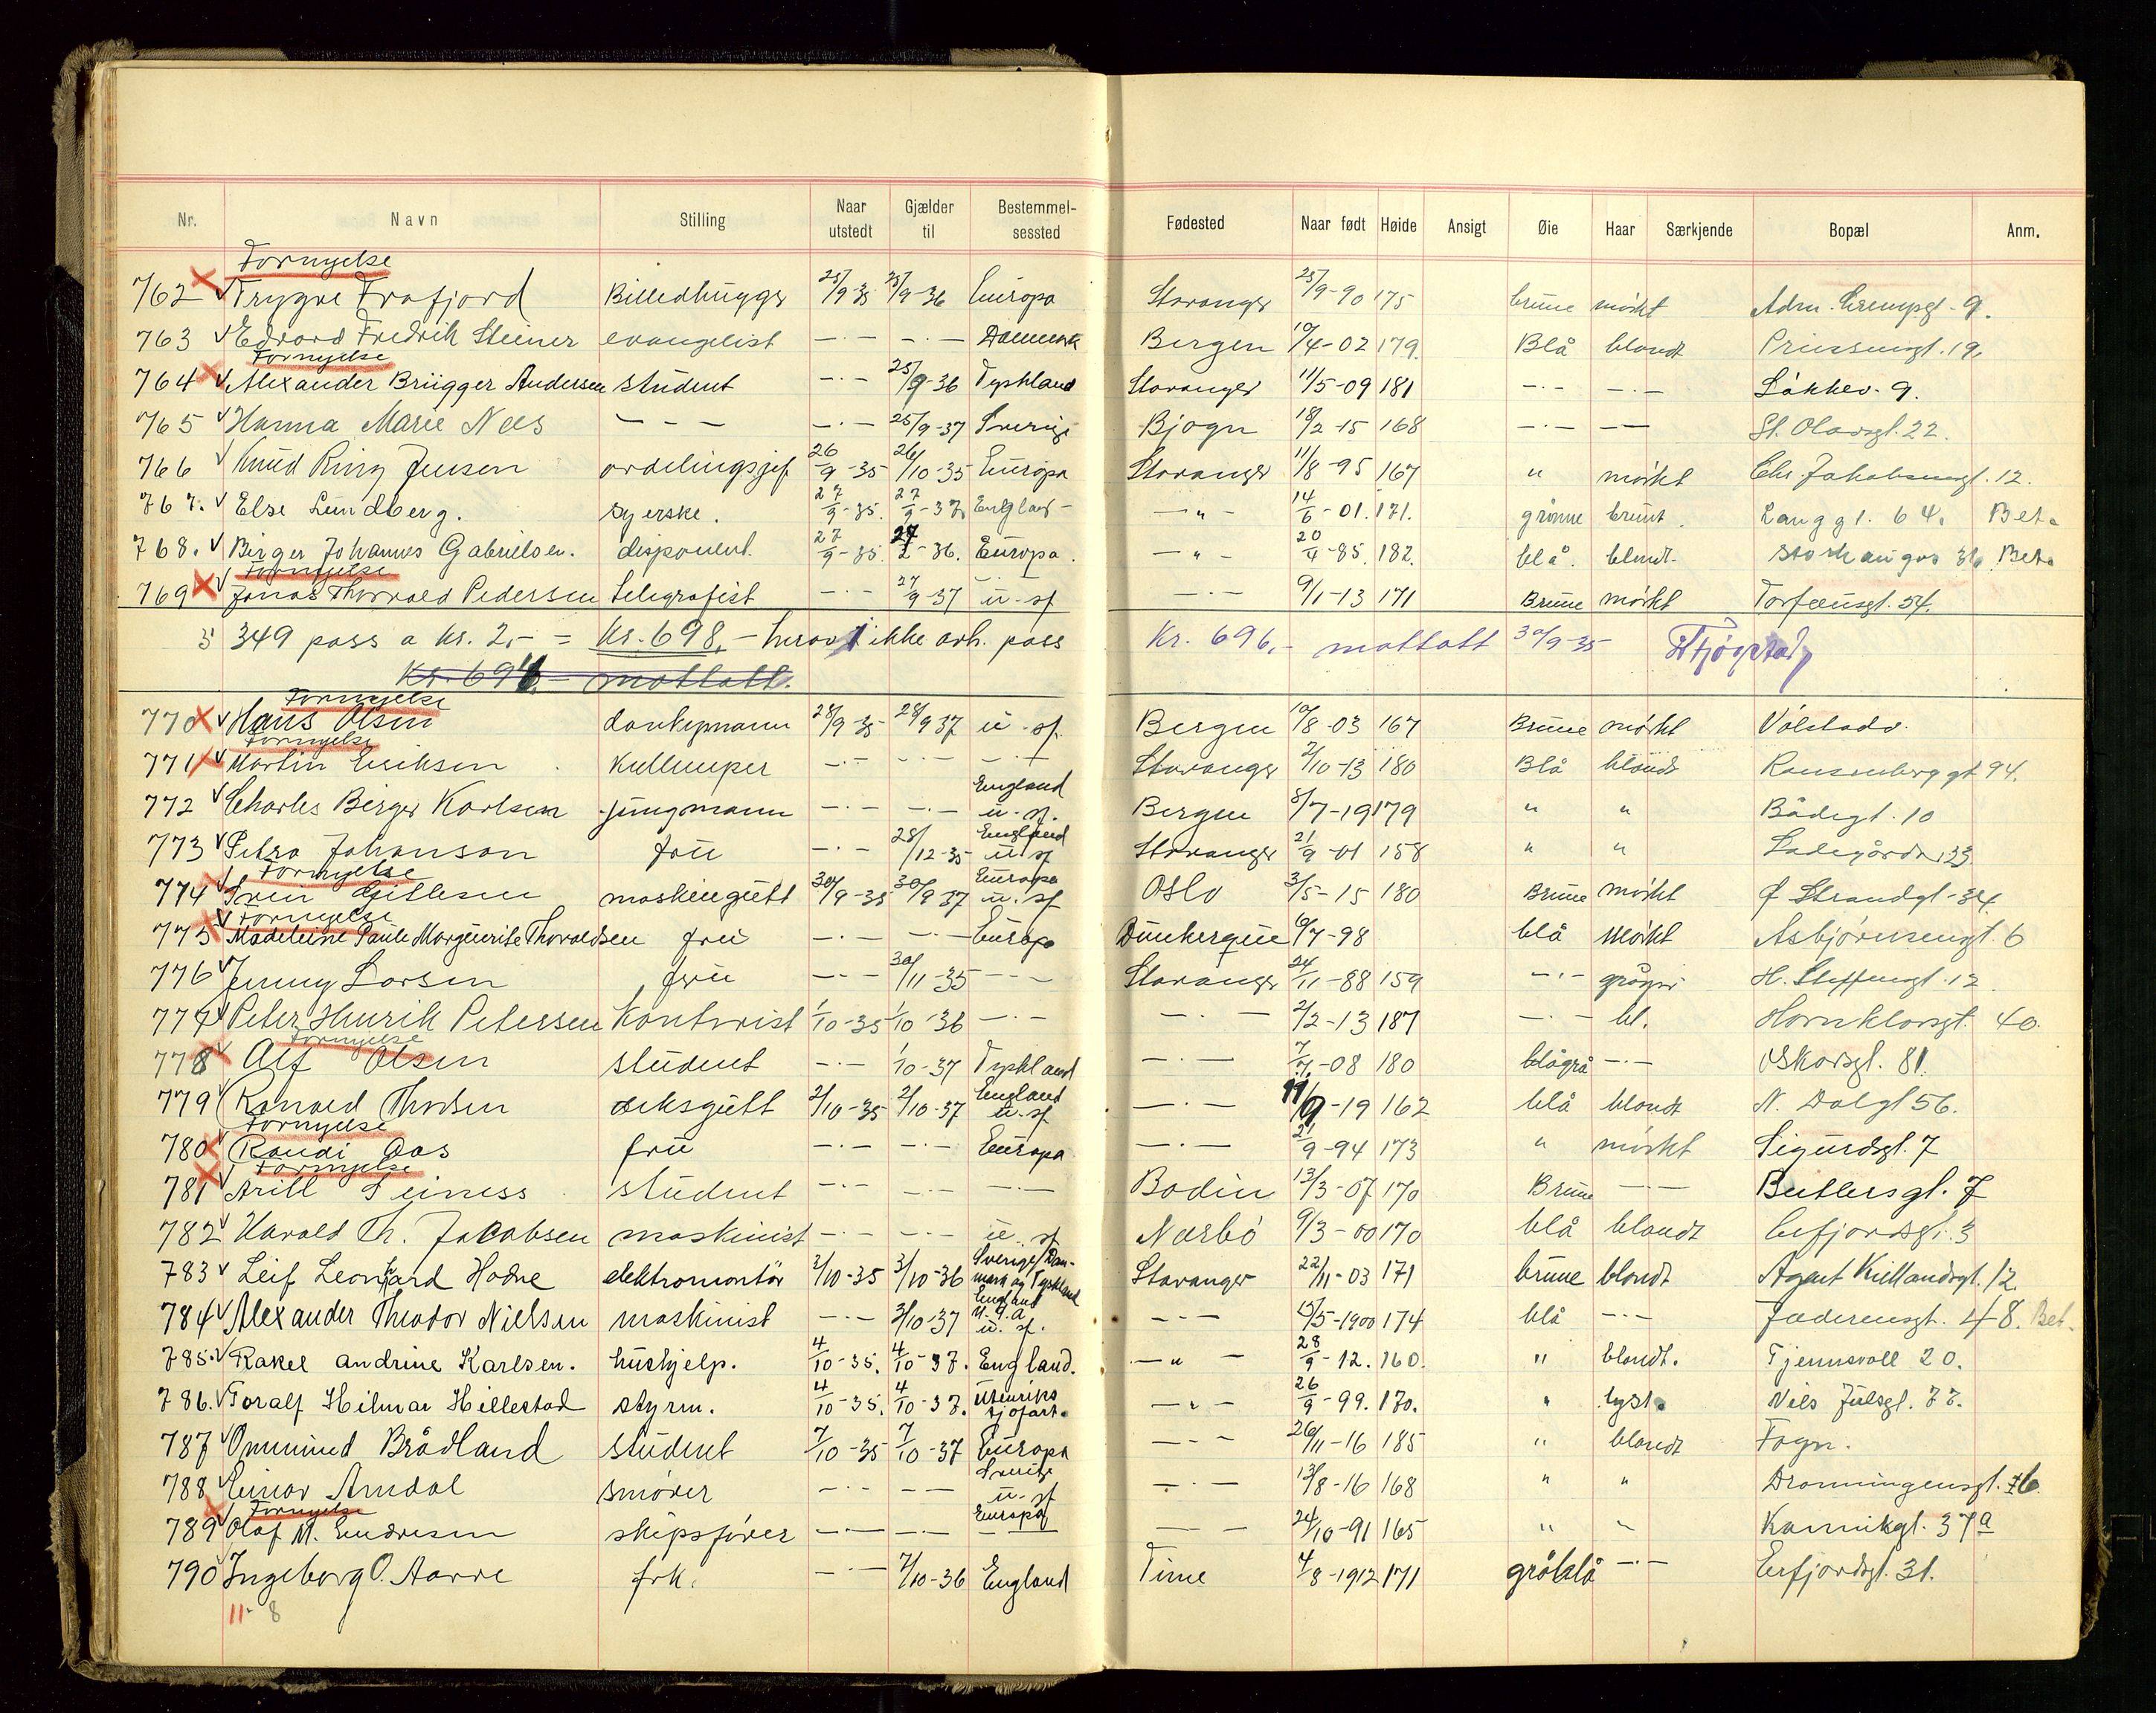 Nr. Navn Stilling Naar utstedt Gjælder til Bestemmelsessted Fødested Naar født Høide Ansigt Øie Haar Særkjende Bopæl Anm.
Fornyelse
762 Trygve Frafjord Billedhugger 25/9-35 25/9-36 Europa Stavanger 25/9-90 175 brune mörkt 9.
763 Edvard Fredrik Steiner evangelist -·- -·- Danmark Bergen 10/4-02 179. Blå blondt 19.
Fornyelse
764 Alexander Brügger Andersen student -·- 25/9-36 Tyskland Stavanger 11/5-09 181 -·- -·- Løkkev. 9.
765 Hanna Marie Nees - - - -·- 25/9-37 Sverige 18/2-15 168 -·- -- St. Olavsgt. 22.
766 Knud Ring Jensen avdelingsjef 26/9-35 26/10-35 Europa Stavanger 11/8-95 167 " mörkt Chr. Jakobsensgt. 12.
767. Else Lundberg. syerske. 27/9-35. 27/9-37. England - -"- 14/6-01. 171. grønne brunt. Langgt. 64. Bet.
768. Birger Johannes Gabrielsen. disponent. 27/9-35. 27/2-36. Europa. -"- 20/4-85. 182. blå. blondt. Storhaugv 36. Bet.
Fornyelse
769 Jonas Thorvald Pedersen telegrafist -·- 27/9-37 u-sf -·- 9/1-13 171 Brune mörkt Torfæusgt. 54.
349 pass a kr. 2,- = Kr. 698,- herav 1 ikke avh. pass Kr. 696,- mottatt 30/9-35
Kr. 696 mottatt.
Fornyelse
770 Hans Olsen donkeymann 28/9-35 28/9 37 u-sf. Bergen 10/8-03 167 Brune mörkt
Fornyelse
771 Martin Eriksen Kullemper -·- -·- -·- Stavanger 2/10-13 180 Blå blondt gt 94.
772 Charles Birger Karlsen jungmann -·- -·- England u-sf. Bergen 8/7-19 179 " " Bådegt. 10
773 Petra Johanson frü -·- 28/12-35 England u.sf Stavanger 21/9-01 158 " "
Fornyelse
774 Svein maskingutt 30/9-35 30/9 37 Europa u.sf Oslo 3/5-15 180 Brune mörkt Ø Strandgt-34.
Fornyelse
775 Madeleine Paule Marguerite Thoraldsen frü -·- -·- Europa Dunkerque 10/7-98 blå mörkt Asbjørnsensgt. 6
776 Jenny Larsen frü -·- 30/11-35 - - - Stavanger 24/11-88 159 -·- H. Steffensgt. 12
777 Peter Henrik Petersen Kontorist 1/10-35 1/10-36 -·- -·- 2/2-13 187 -·- bl. Hornklovsgt. 40.
Fornyelse
778 Alf Olsen student -·- 1/10-37 Tyskland -·- 7/7-08 180 blågrå -·- Oskarsgt. 81.
779 Ranvald Thorsen deksgutt 2/10-35 2/10-37 England u.sf -·- 11/9-19 162 blå blondt N. Dalgt 56.
Fornyelse
780 Randi Aas frü -·- -·- Europa -·- 21/9-94 173 " mörkt Sigurdsgt. 7
Fornyelse
781 Arild student -·- -·- -·- Bodin 13/3-07 170 Brune -·- Butlersgt. 7
782 Harald Th. Jacobsen maskinist -·- -·- u.sf Nærbö 9/3-00 170 blå blondt 3
783 Leif Leonhard Hodne elektromontör 3/10-35 3/10-36 Sverige/Danmark og Tyskland Stavanger 22/11-03 171 brune blondt Agent Kiellandsgt. 12
784 Alexander Theodor Nielsen maskinist -·- 3/10-37 England U.S.A u. sf. - - - 15/5-1900 174 blå -·- Jæderensgt. 48. Bet.
785. Rakel Andrine Karlsen. hushjelp. 4/10-35. 4/10-37. England. -"- 28/9-12. 160. " blondt. Tjensvoll 20.
786. Toralf Hilmar Hillestad styrm. 4/10-35. 4/10-37. Utenriks sjøfart. -"- 26/9-99. 170. " lyst. Nils Julsgt. 77.
787 Ommund Brådland student 7/10-35 7/10-37 Europa -·- 26/11-16 185 " blondt Fogn.
788 Einar Arndal smører -·- -- Sverige u-sf -·- 13/8-16 168 " " Dronningensgt. 76.
Fornyelse
789 Olaf M. Endresen skipsfører -·- -·- Europa -- 24/10-91 165 " " Kannikgt. 37a
790 Ingeborg O. Aarre frk. -·- 7/10-36 England Time 4/8-1912 171 gråblå -·- Erfjordsgt. 31.
11- 8